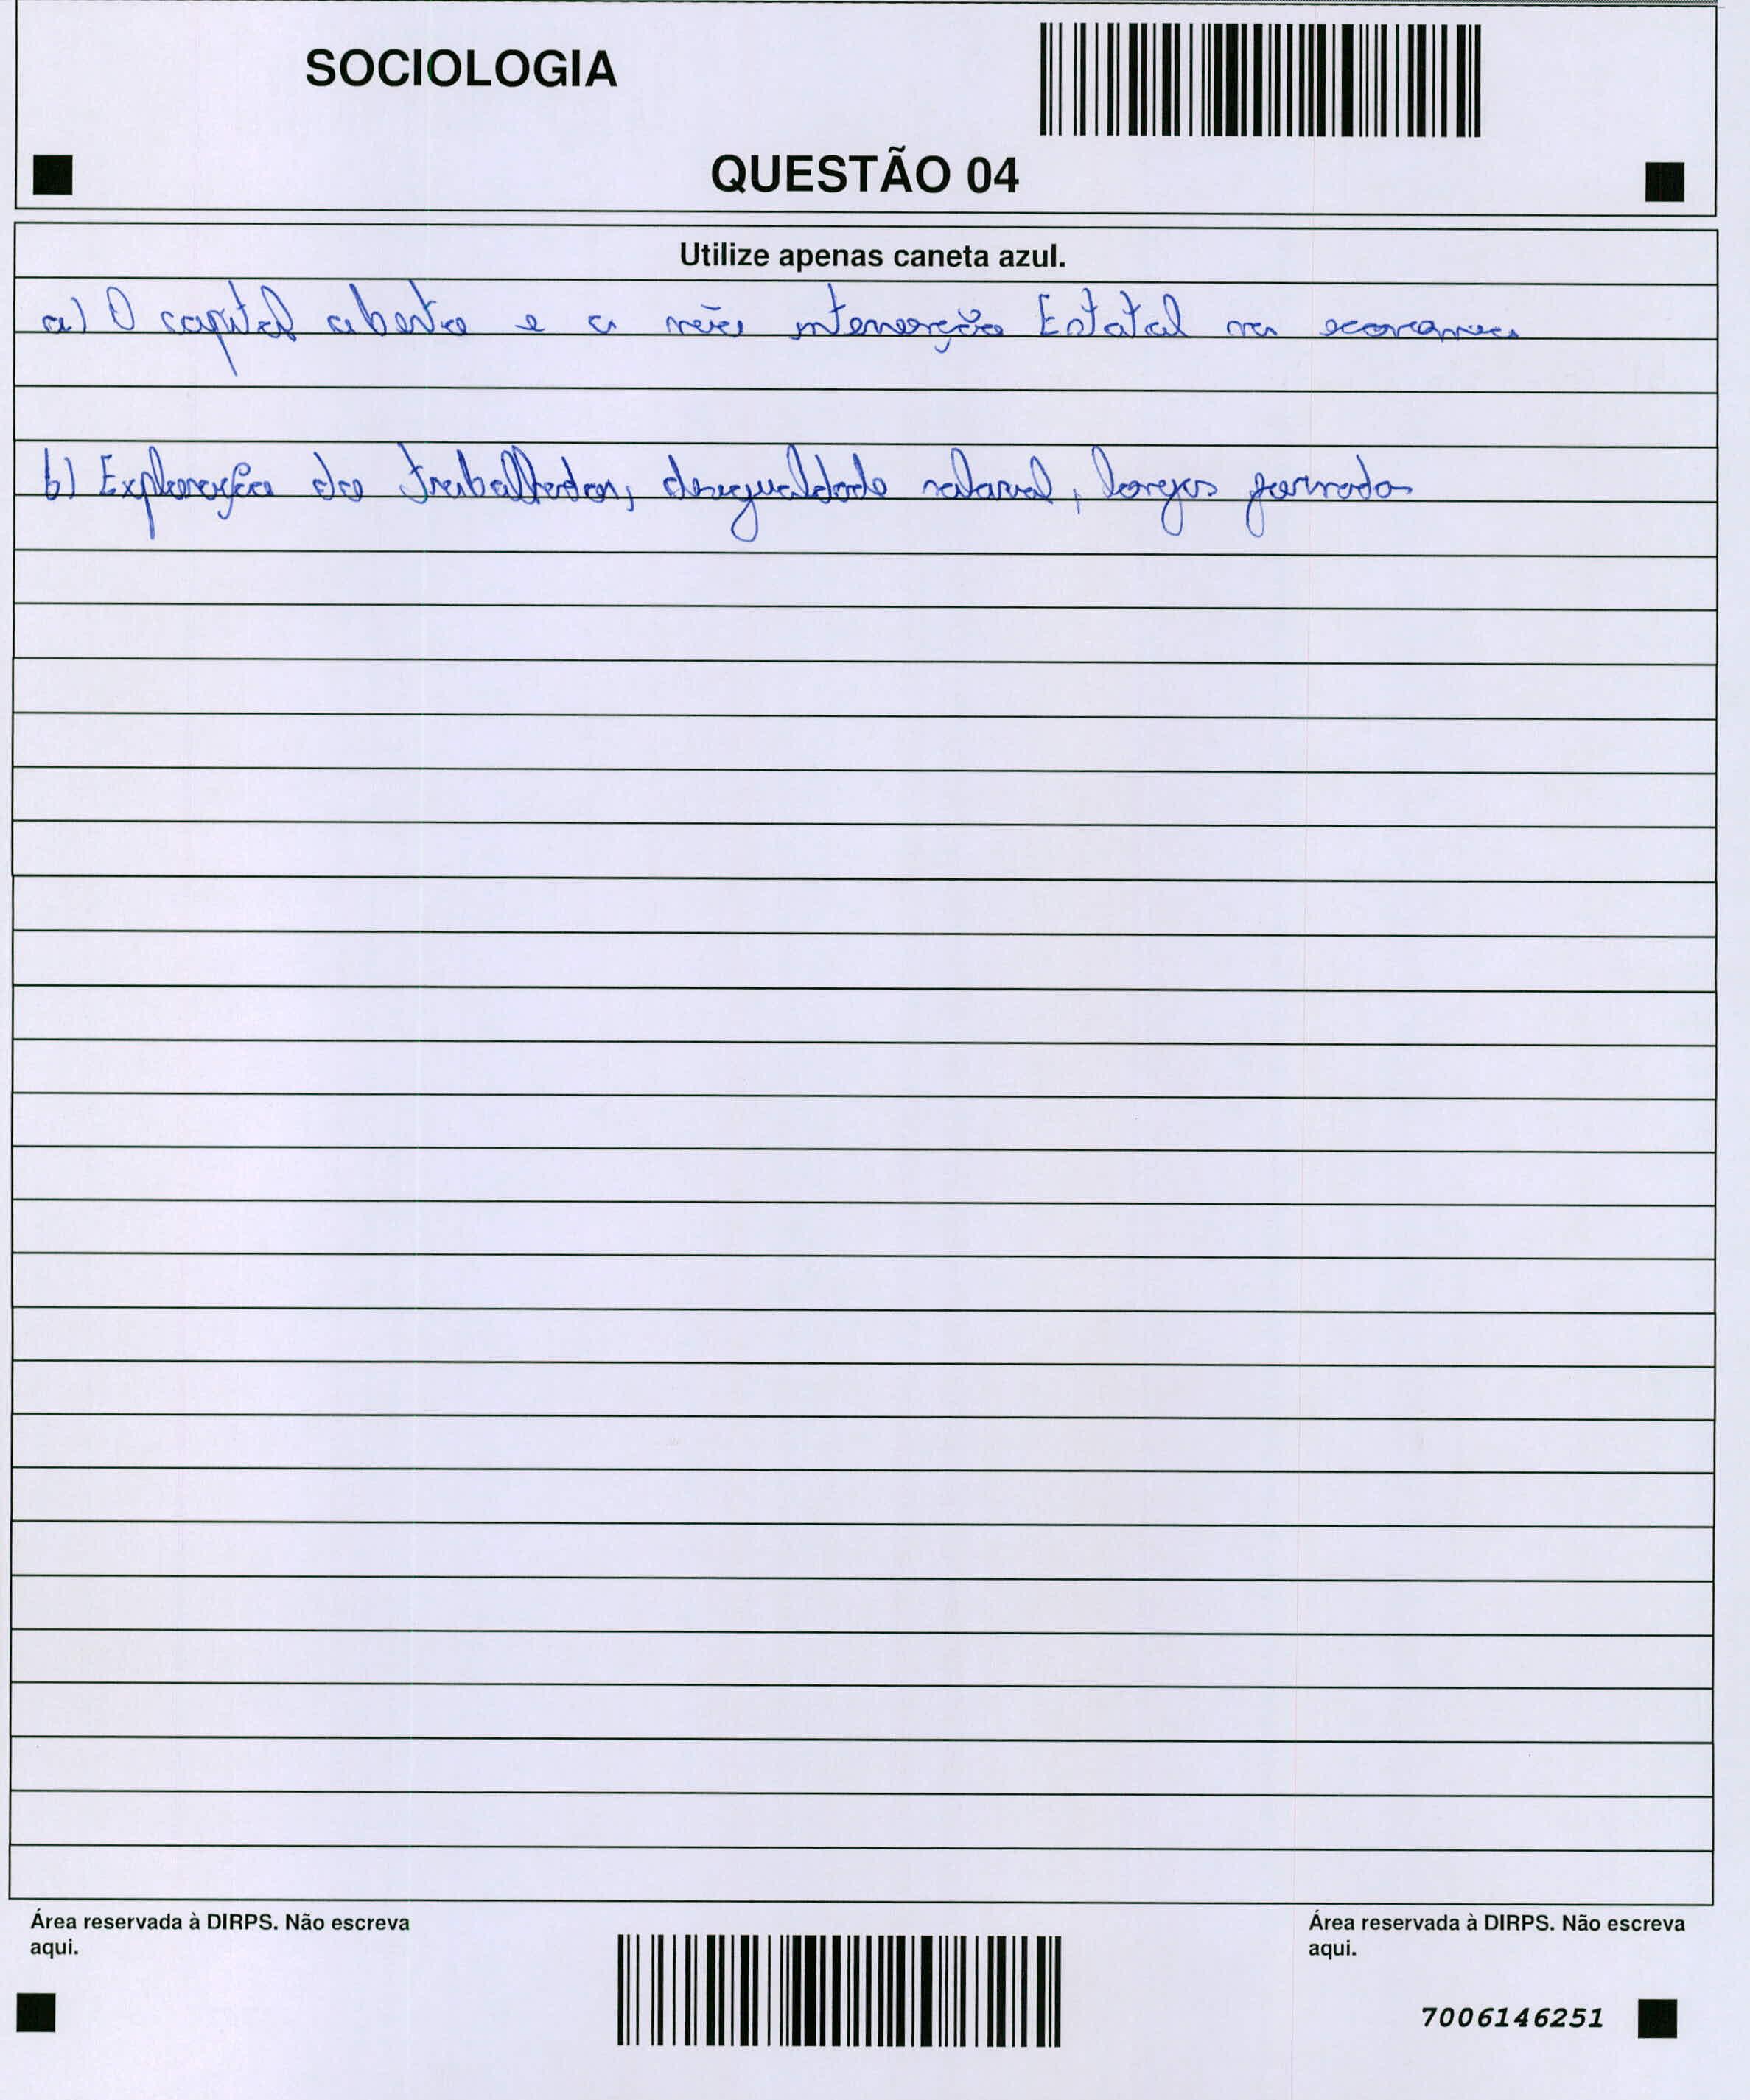 SOCIOLOGIA
QUESTÃO 04
Utilize apenas caneta azul.
a) O capital aberto e a não intervenção Estatal na economia
b) Exploração do trabalhador, desigualdade salarial, longas jornadas
Área reservada à DIRPS. Não escreva
aqui.
Área reservada à DIRPS. Não escreva
aqui.
7006146251